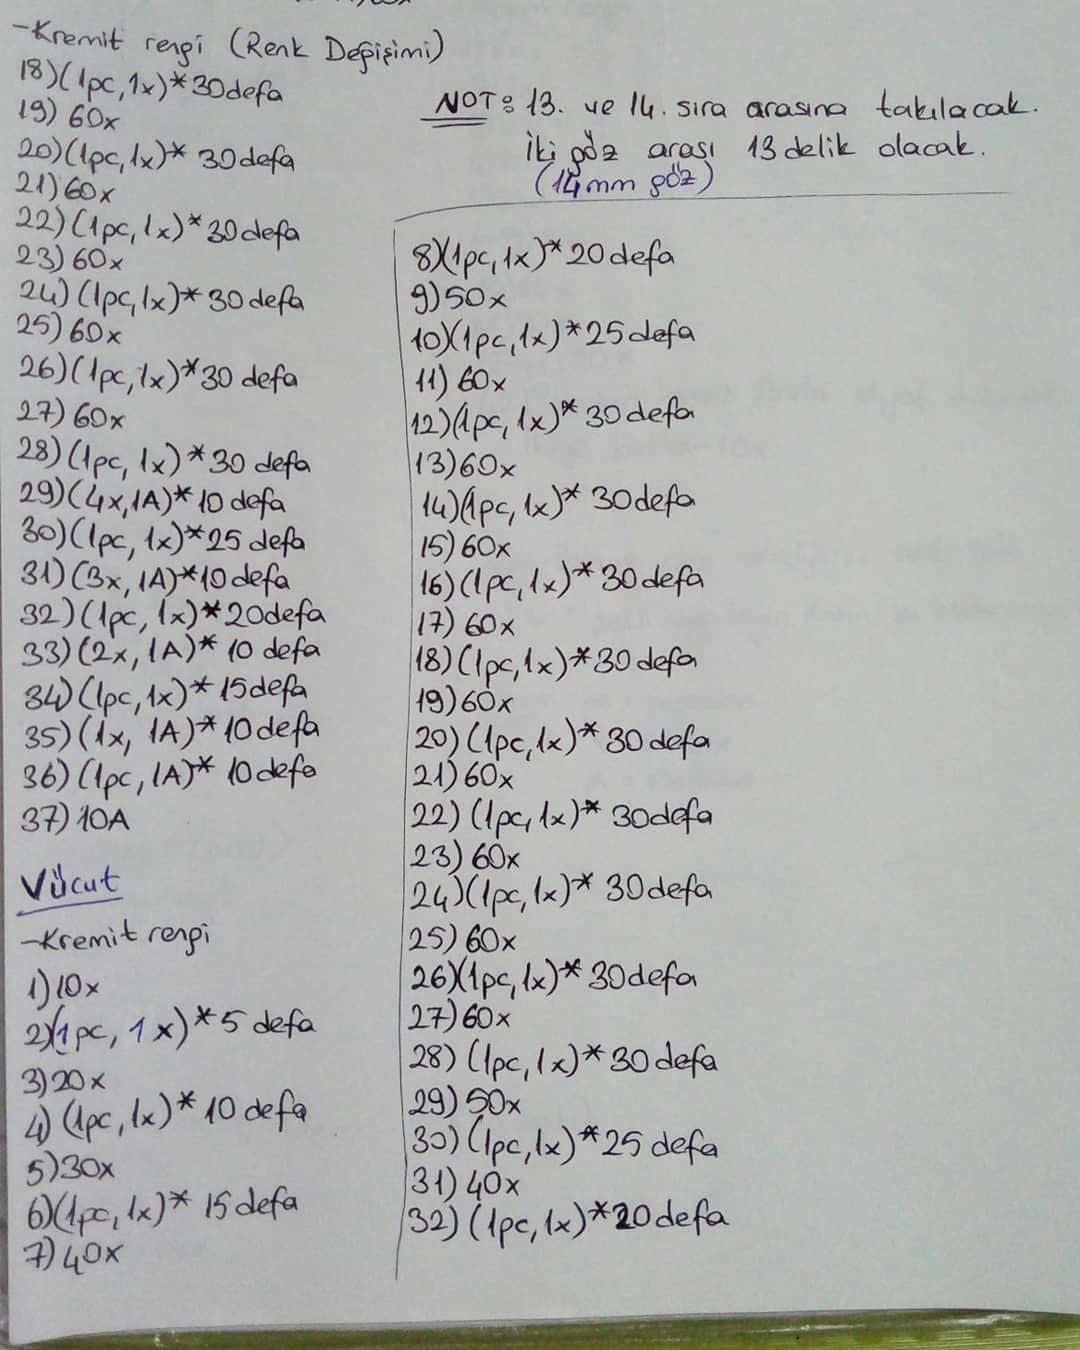 -Kremit rengi (Renk Değişimi)
18)(1pc,1x)*30defa
19) 60x
20)(1pc,1x)* 30defa
21)60x
22)(1pc,1x)*30defa
23)60x
24)(1pc,1x)*30defa
25)60x
26)(1pc,1x)*30 defa
27)60x
28)(1pc, 1x)*30 defa
29)(4x,1A)*10 defa
30)(1pc, 1x)*25 defa
31)(3x,1A)*10defa
32)(1pc, 1x)*20defa
33)(2x,1A)* 10 defa
34)(1pc,1x)*15defa
35)(1x, 1A)*10defa
36)(1pc,1A)* 10defa
37)10A
Vücut
-Kremit rengi
1)10x
2)(1pc, 1x)*5 defa
3)20x
4)(1pc,1x)*10 defa
5)30x
6)(1pc,1x)* 15defa
7)40x
NOT: 13. ve 14. sıra arasına takılacak.
İki göz arası 13 delik olacak.
(14mm göz)
8)(1pc,1x)*20defa
9)50x
10)(1pc,1x)*25defa
11) 60x
12)(1pc,1x)*30defa
13)60x
14)(1pc,1x)* 30defa
15)60x
16)(1pc,1x)*30defa
17) 60x
18)(1pc,1x)*30defa
19)60x
20)(1pc,1x)*30 defa
21)60x
22)(1pc,1x)* 30defa
23)60x
24)(1pc,1x)* 30defa
25)60x
26)(1pc,1x)*30defa
27)60x
28) (1pc,1x)*30 defa
29)50x
30)(1pc,1x)*25 defa
31)40x
32)(1pc,1x)*20defa